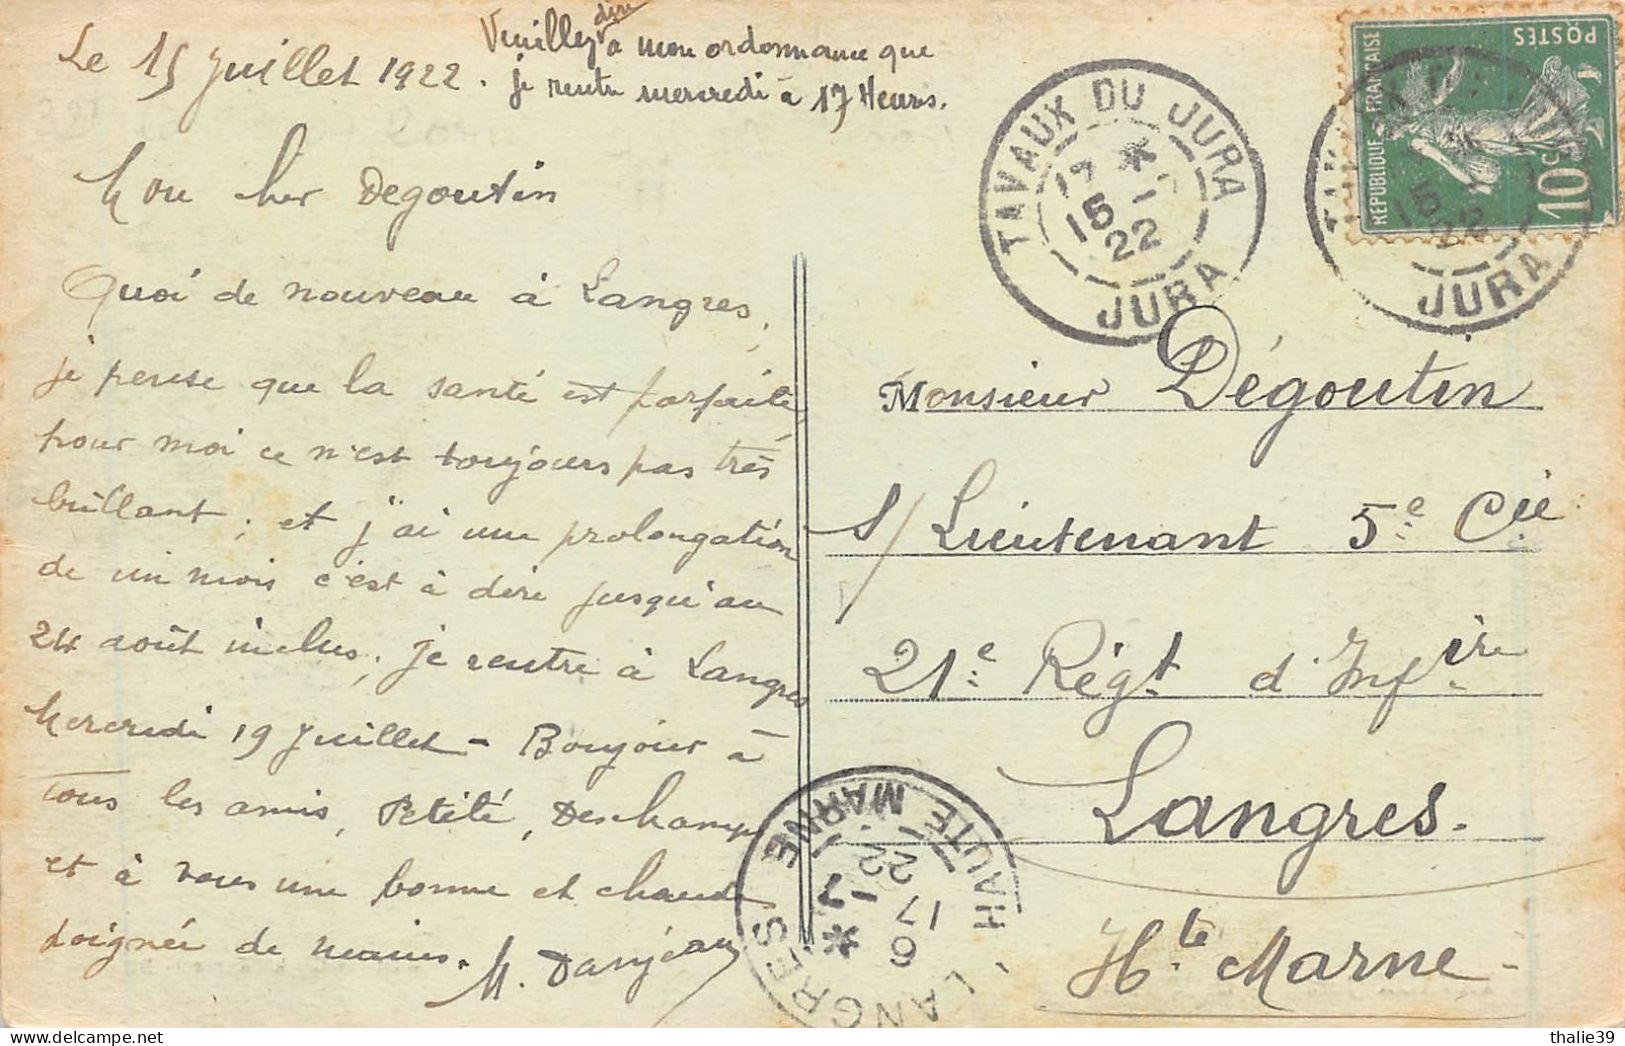 Le 15 Juillet 1922.
Veuillez dire à mon ordonnance que
je rentre mercredi à 17 Heures.
Mon cher Degoutin
Quoi de nouveau à Langres,
je pense que la santé est parfaite,
pour moi ce n'est toujours pas très
brillant; et j'ai une prolongation
de un mois c'est à dire jusqu'au
24 août inclus; je rentre à Langres
Mercredi 19 Juillet - Bonjour à
tous les amis, Petité, Deschamps
et à vous une bonne et chaude
poignée de mains.
M. Danjean
TAVAUX DU JURA
17 *
15 - 7
22
JURA
JURA
15
22
POSTES
REPUBLIQUE FRANÇAISE
10c
Monsieur Dégoutin
S/Lieutenant 5e Cie
21e Régt d'Infire
Langres.
Hte Marne -
LANGRES
HAUTE MARNE
6
17 - 7
22
*
thalie39